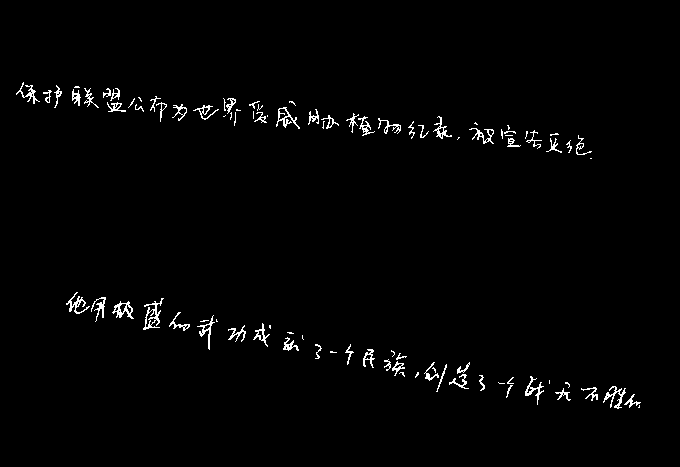 保护联盟公布为世界受威胁植物红录，被宣告灭绝
他用极盛的武功成就了一个民族，创造了一个战无不胜的